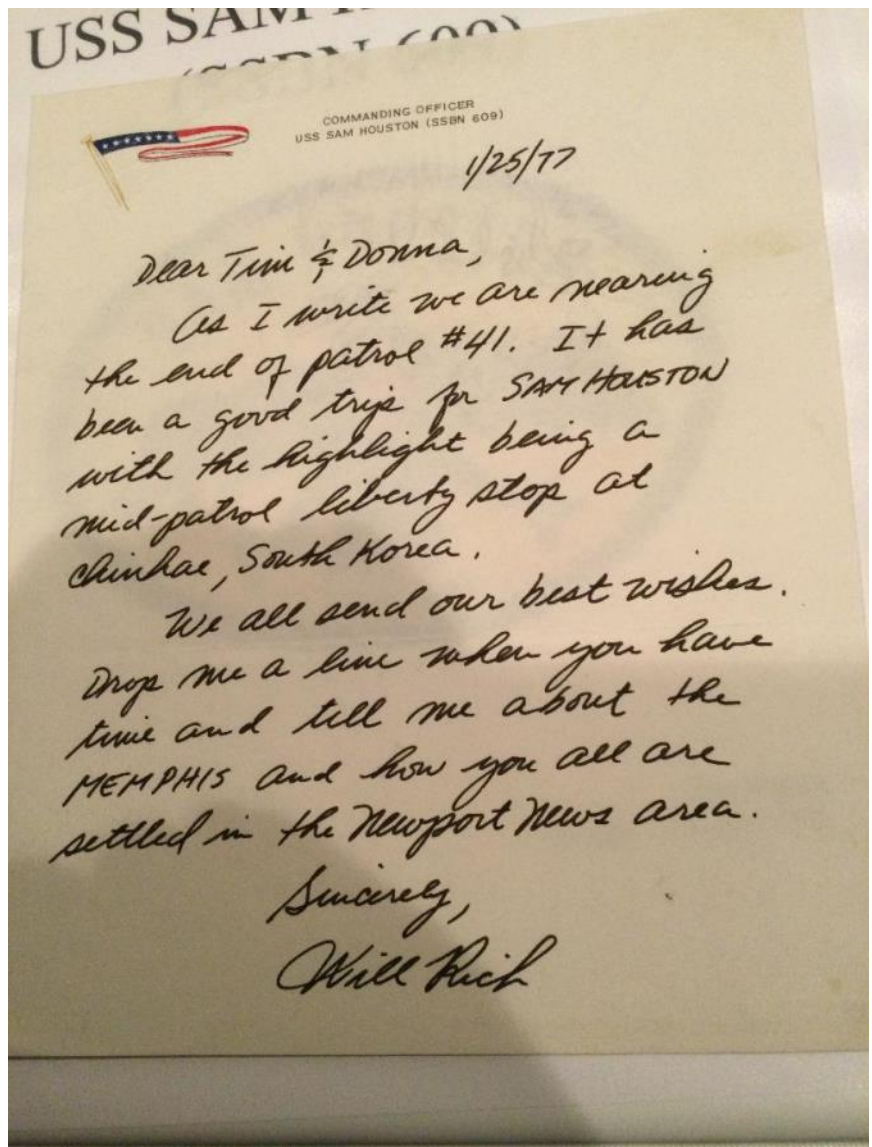 USS SAM
(SSBN 609)
COMMANDING OFFICER
USS SAM HOUSTON (SSBN 609)
1/25/77
Dear Tim & Donna,
As I write we are nearing
the end of patrol #41. It has
been a good trip for SAM HOUSTON
with the highlight being a
mid-patrol liberty stop at
Chinhae, South Korea.
We all send our best wishes.
Drop me a line when you have
time and tell me about the
MEMPHIS and how you all are
settled in the Newport News area.
Sincerely,
Will Rich